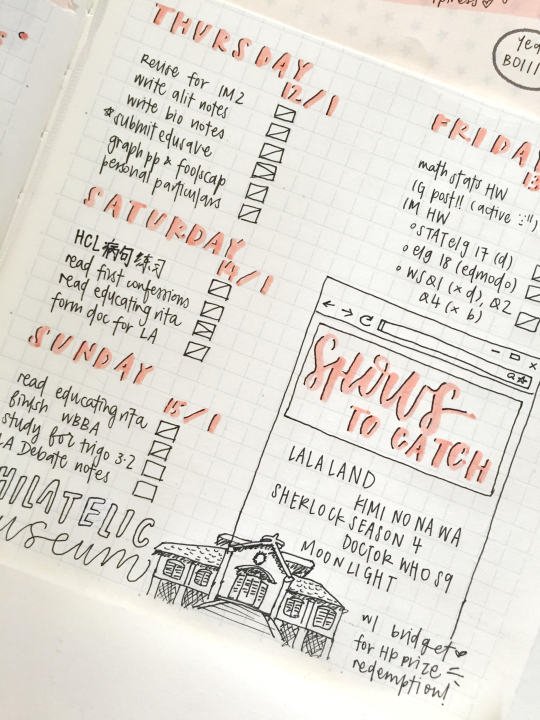 THURSDAY
12/1
revise for IM2
write alit notes
write bio notes
*submit edusave
graph pp & foolscap
personal particulars
SATURDAY
14/1
HCL病句练习
read first confessions
read educating rita
form doc for LA
SUNDAY
15/1
read educating rita
finish WBBA
study for trigo 3.2
LA Debate notes
PHILATELIC
museum
piness
yea
BOIII
FRIDAY
13
math stats HW
IG post!! (active
IM HW
STAT e/g 17 (d)
e/g 18 (edmodo)
WS Q1 (x d), Q2
Q4 (x b)
SHOWS
TO CATCH
LALALAND
KIMI NO NA WA
SHERLOCK SEASON 4
DOCTOR WHO S9
MOONLIGHT
w/ bridget
for Hp prize
redemption!